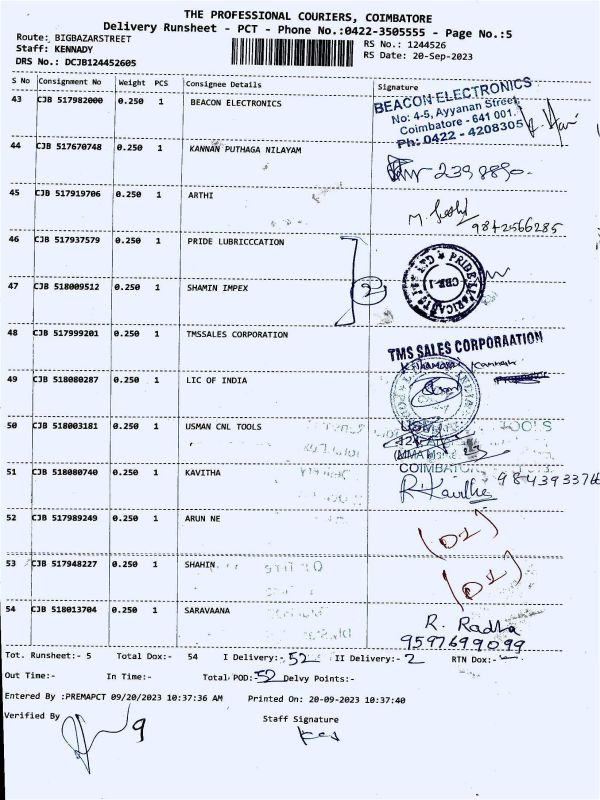 THE PROFESSIONAL COURIERS, COIMBATORE
Delivery Runsheet - PCT - Phone No.:0422-3505555 - Page No.:5
Route: BIGBAZARSTREET RS No.: 1244526
Staff: KENNADY RS Date: 20-Sep-2023
DRS No.: DCJB124452605
S No Consignment No Weight PCS Consignee Details Signature
43 CJB 517982000 0.250 1 BEACON ELECTRONICS
BEACON ELECTRONICS
No: 4-5, Ayyanan Street,
Coimbatore - 641 001.
Ph: 0422 - 4208305
44 CJB 517670748 0.250 1 KANNAN PUTHAGA NILAYAM
2398890
45 CJB 517919706 0.250 1 ARTHI
9842566285
46 CJB 517937579 0.250 1 PRIDE LUBRICCCATION
2
CBE-1
47 CJB 518009512 0.250 1 SHAMIN IMPEX
48 CJB 517999201 0.250 1 TMSSALES CORPORATION
TMS SALES CORPORAATION
49 CJB 518080287 0.250 1 LIC OF INDIA
50 CJB 518003181 0.250 1 USMAN CNL TOOLS
TOOLS
51 CJB 518080740 0.250 1 KAVITHA
R. Kavitha
52 CJB 517989249 0.250 1 ARUN NE
(DL)
53 CJB 517948227 0.250 1 SHAHIN
(DL)
54 CJB 518013704 0.250 1 SARAVAANA
R. Radha
9597699099
Tot. Runsheet:- 5 Total Dox:- 54 I Delivery:- 52 II Delivery:- 2 RTN Dox:-
Out Time:- In Time:- Total POD:- 52 Delvy Points:-
Entered By :PREMAPCT 09/20/2023 10:37:36 AM Printed On: 20-09-2023 10:37:40
Verified By Staff Signature